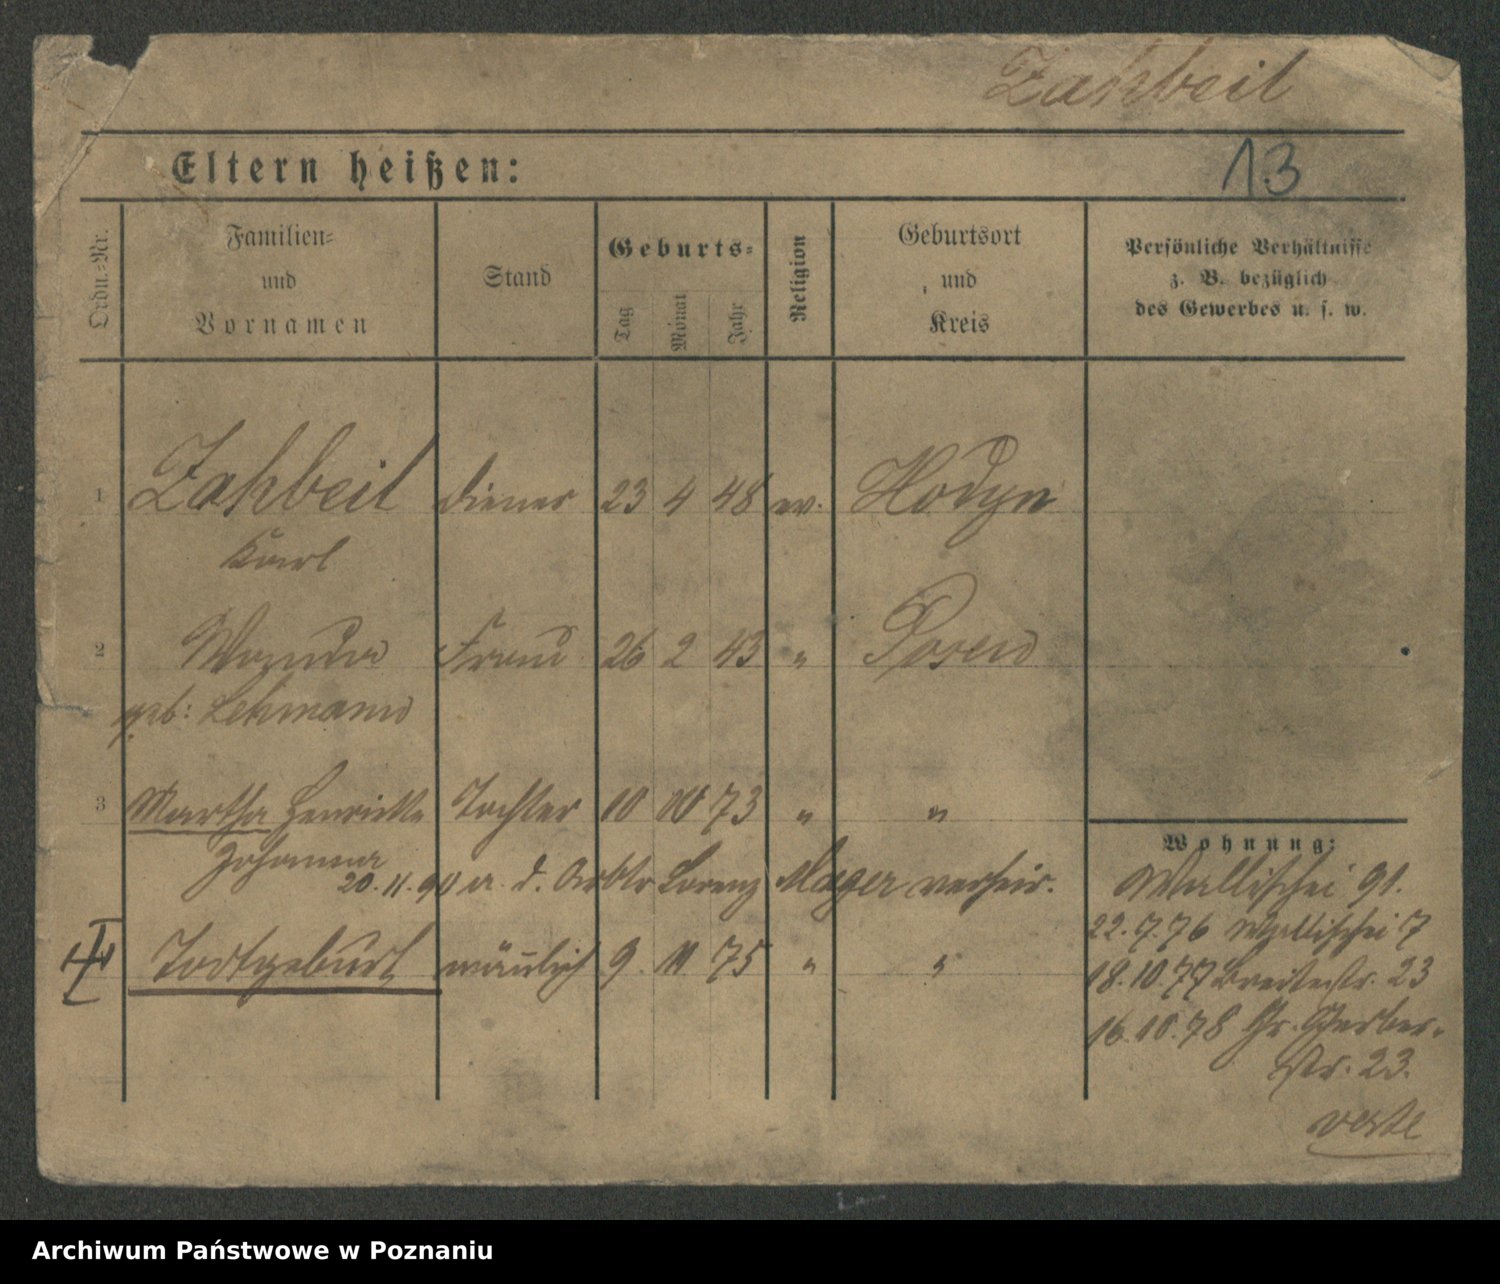 Zahbeil
Eltern heißen:
13
Ordn.-Nr.
Familien-
und
Vornamen
Stand
Geburts-
Tag
Monat
Jahr
Religion
Geburtsort
und
Kreis
Persönliche Verhältnisse
z. B. bezüglich
des Gewerbes u. s. w.
1 Zahbeil Diener 23 4 48 ev. Hodyn
Karl
2 Wanda Frau 26 2 43 " Posen
geb: Lehmann
3 Martha Henriette Tochter 10 10 73 " "
Johanna
20. 11. 90 a. d. Arbtr Lorenz Mager verheir.
Todtgeburt männlich 9. 11 75 " "
Wohnung:
Wallischei 91.
22. 7. 76 Wallischei 7
18. 10. 77 Breitestr. 23
16. 10. 78 Gr. Gerber-
str. 23.
verte
Archiwum Państwowe w Poznaniu